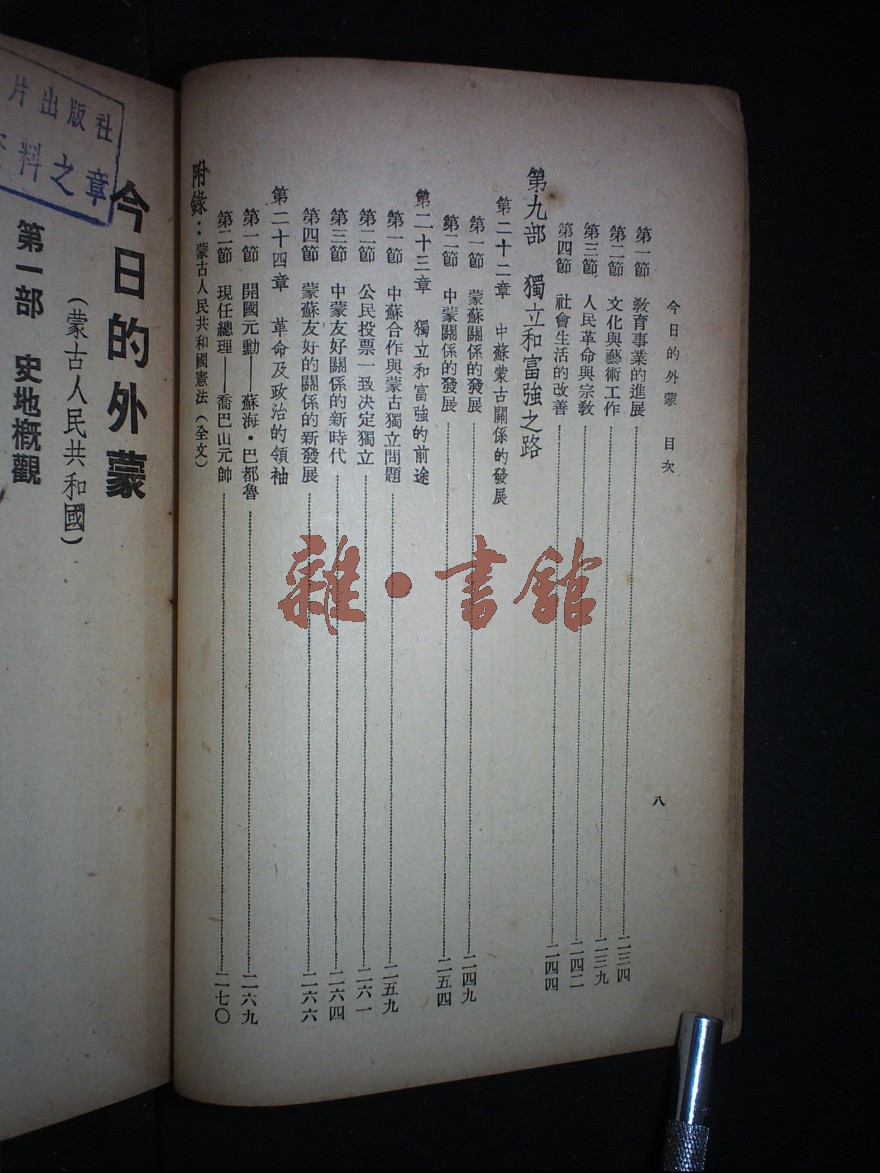 今日的外蒙 目次
八
第一節 教育事業的進展 二三四
第二節 文化與藝術工作 二三九
第三節 人民革命與宗教 二四二
第四節 社會生活的改善 二四四
第九部 獨立和富強之路
第二十二章 中蘇蒙古關係的發展
第一節 蒙蘇關係的發展 二四九
第二節 中蒙關係的發展 二五四
第二十三章 獨立和富強的前途
第一節 中蘇合作與蒙古獨立問題 二五九
第二節 公民投票一致決定獨立 二六一
第三節 中蒙友好關係的新時代 二六四
第四節 蒙蘇友好的關係的新發展 二六六
第二十四章 革命及政治的領袖
第一節 開國元勳——蘇海·巴都魯 二六九
第二節 現任總理——喬巴山元帥 二七〇
附錄：蒙古人民共和國憲法（全文）
雜·書館
片出版社
資料之章
今日的外蒙
（蒙古人民共和國）
第一部 史地概觀